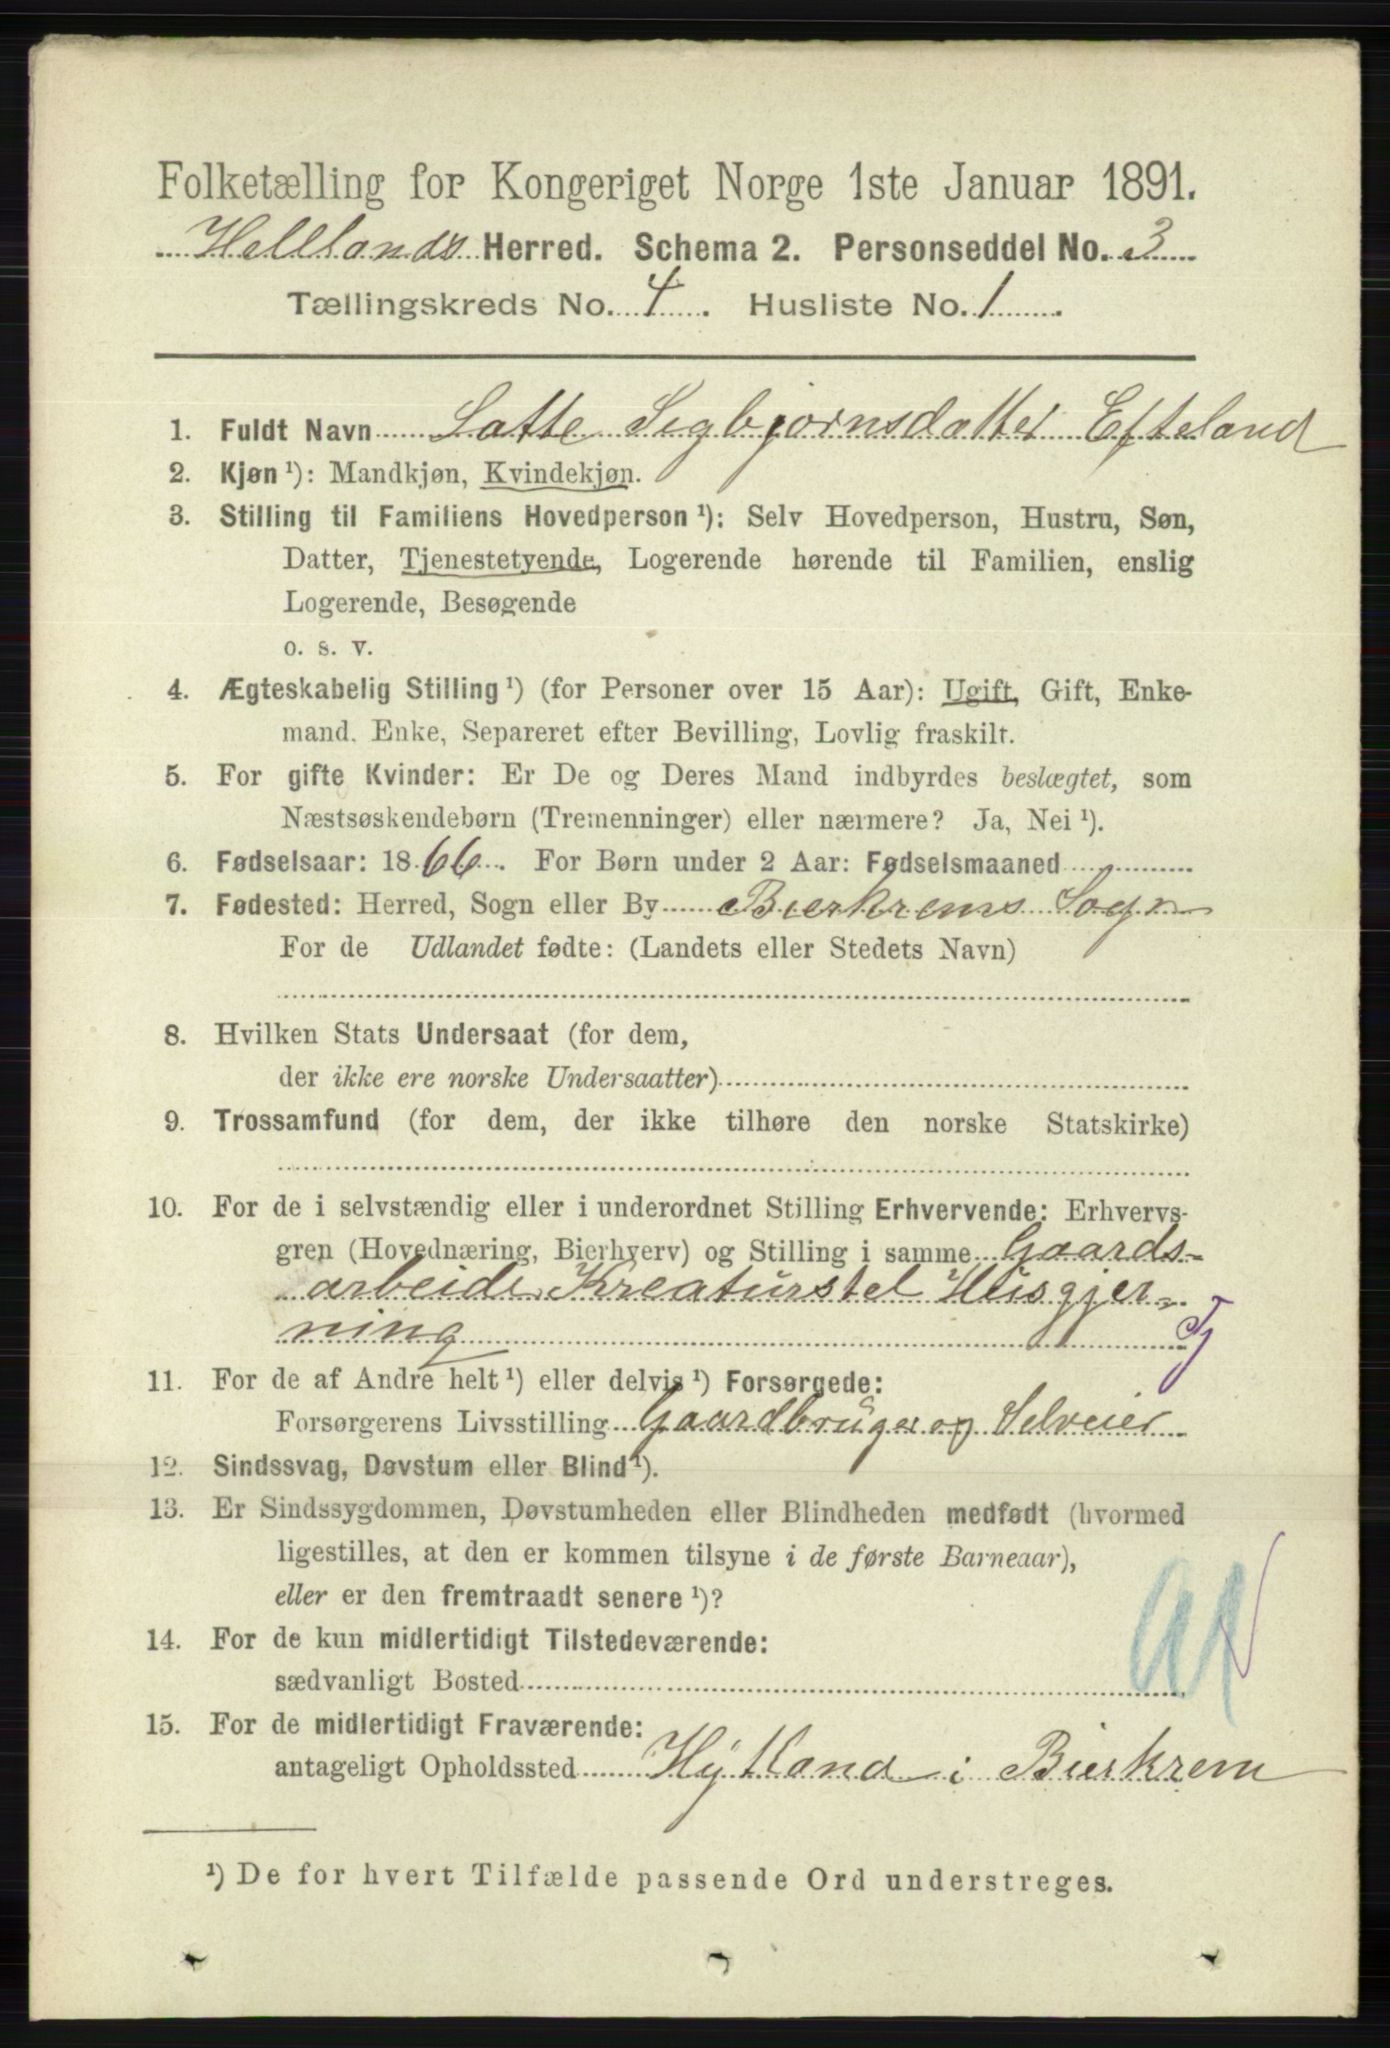 Folketælling for Kongeriget Norge 1ste Januar 1891.
Hellands Herred. Schema 2. Personseddel No. 3
Tællingskreds No. 4. Husliste No. 1.
1. Fuldt Navn Satte Segbjørnsdatter Efteland
2. Kjøn ¹): Mandkjøn, Kvindekjøn.
3. Stilling til Familiens Hovedperson ¹): Selv Hovedperson, Hustru, Søn,
Datter, Tjenestetyende, Logerende hørende til Familien, enslig
Logerende, Besøgende
o. s. v.
4. Ægteskabelig Stilling ¹) (for Personer over 15 Aar): Ugift, Gift, Enke-
mand. Enke, Separeret efter Bevilling, Lovlig fraskilt.
5. For gifte Kvinder: Er De og Deres Mand indbyrdes beslægtet, som
Næstsøskendebørn (Tremenninger) eller nærmere? Ja, Nei ¹).
6. Fødselsaar: 1866. For Børn under 2 Aar: Fødselsmaaned
7. Fødested: Herred, Sogn eller By Bierkrems Sogn
For de Udlandet fødte: (Landets eller Stedets Navn)
8. Hvilken Stats Undersaat (for dem,
der ikke ere norske Undersaatter)
9. Trossamfund (for dem, der ikke tilhøre den norske Statskirke)
10. For de i selvstændig eller i underordnet Stilling Erhvervende: Erhvervs-
gren (Hovednæring, Bierhverv) og Stilling i samme Gaards-
arbeide Kreaturstel Husgjer-
ning Tj
11. For de af Andre helt ¹) eller delvis ¹) Forsørgede:
Forsørgerens Livsstilling Gaardbruger og Selveier
12. Sindssvag, Døvstum eller Blind ¹).
13. Er Sindssygdommen, Døvstumheden eller Blindheden medfødt (hvormed
ligestilles, at den er kommen tilsyne i de første Barneaar),
eller er den fremtraadt senere ¹)?
14. For de kun midlertidigt Tilstedeværende:
sædvanligt Bosted
15. For de midlertidigt Fraværende:
antageligt Opholdssted Hÿtland i Bierkrem
¹) De for hvert Tilfælde passende Ord understreges.